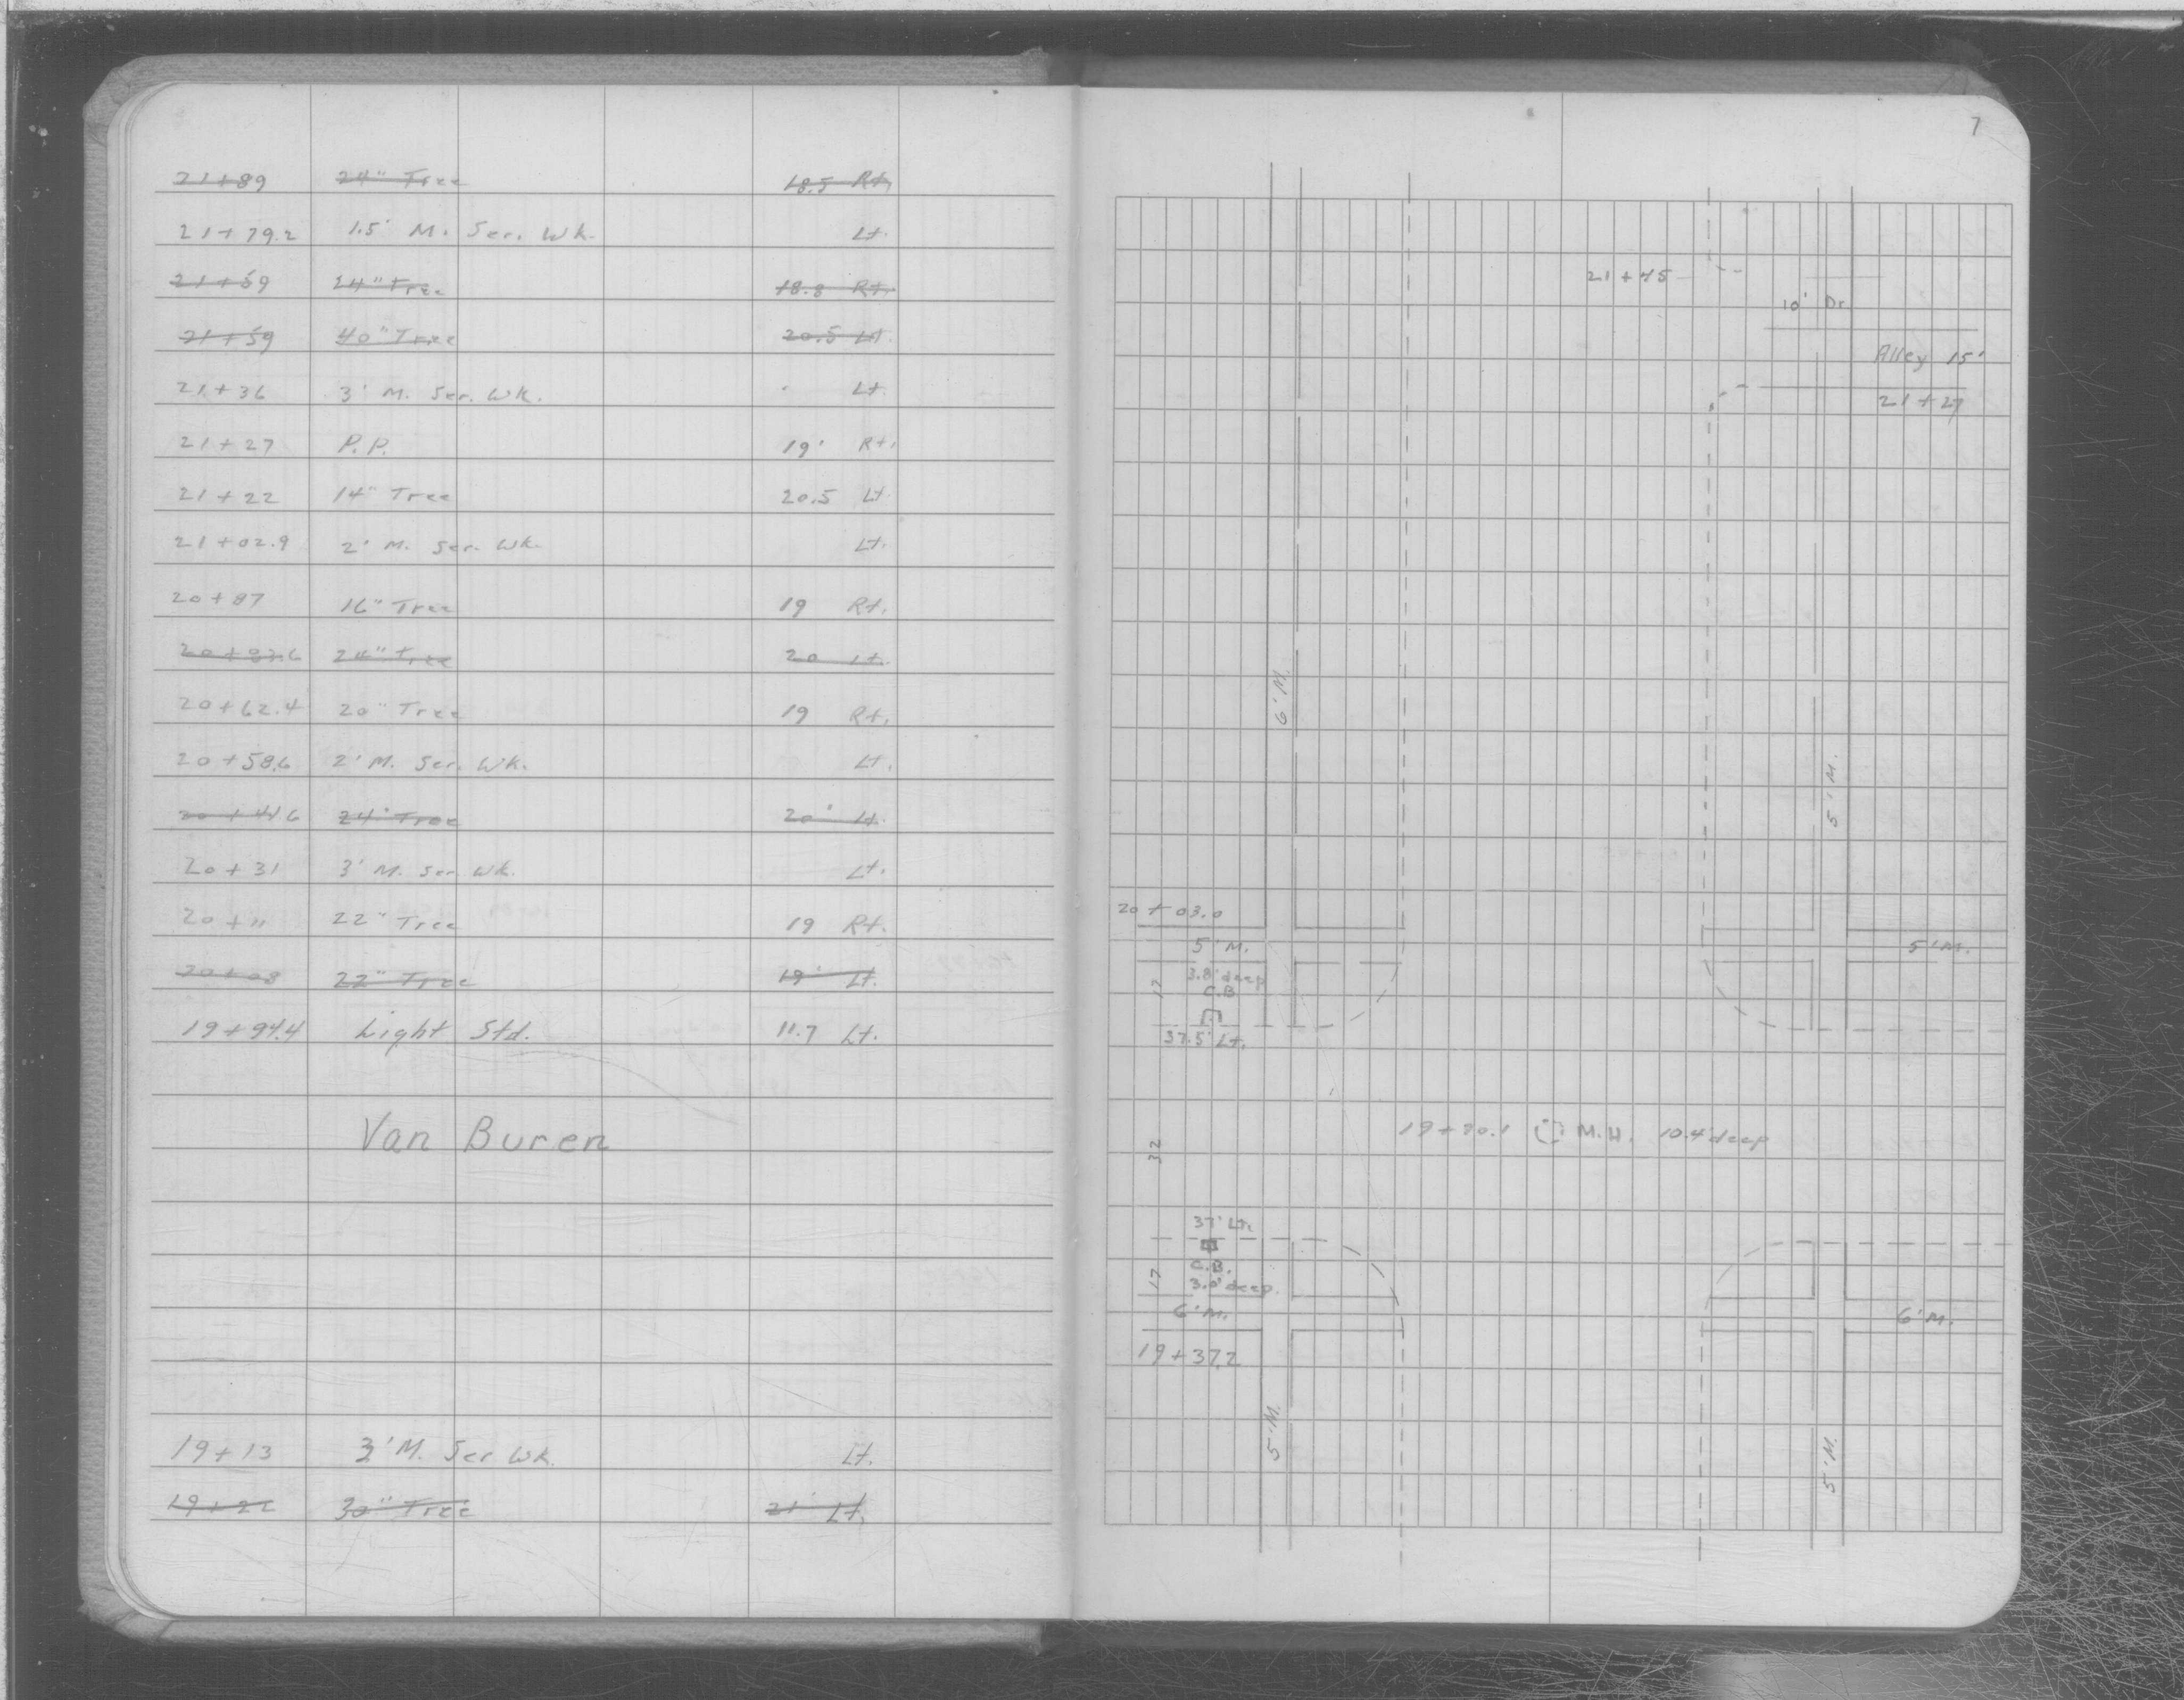 21+89 24" Tree 18.5 Rt.
21+79.2 1.5' M. Ser. Wk. Lt.
21+59 24" Tree 18.8 Rt.
21+59 40" Tree 20.5 Lt.
21+36 3' M. Ser. Wk. Lt.
21+27 P.P. 19' Rt.
21+22 14" Tree 20.5 Lt.
21+02.9 2' M. Ser. Wk. Lt.
20+87 16" Tree 19 Rt.
24" Tree 20 Lt.
20+62.4 20" Tree 19 Rt.
20+58.6 2' M. Ser. Wk. Lt.
24" Tree 20' Lt.
20+31 3' M. Ser. Wk. Lt.
20+11 22" Tree 19 Rt.
20+03 22" Tree 19' Lt.
19+94.4 Light Std. 11.7 Lt.
Van Buren
19+13 3' M. Ser Wk. Lt.
19+22 30" Tree 21' Lt.
7
21+45
10' Dr
Alley 15'
21+27
6' M.
5' M.
20+03.0
5' M.
5' M.
17
3.8' deep
C.B
37.5' Lt.
32
M.H. 10.4' deep
37' Lt.
17
C.B.
3.0' deep.
6' M.
6' M.
19+37.2
5' M.
5' M.